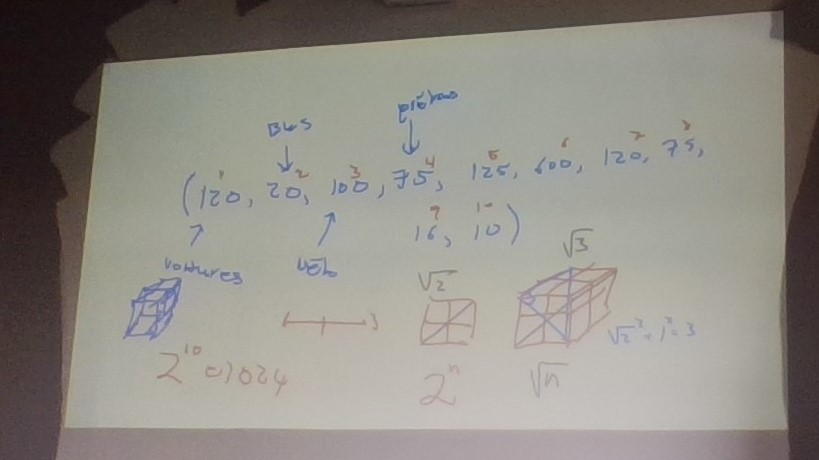 Bus
piétons
1 2 3 4 5 6 7 8
(120, 20, 100, 75, 125, 600, 120, 75,
9 10
16, 10)
voitures
vélo
√2
√3
√2² + 1² = 3
2¹⁰ = 1024
2ⁿ
√n